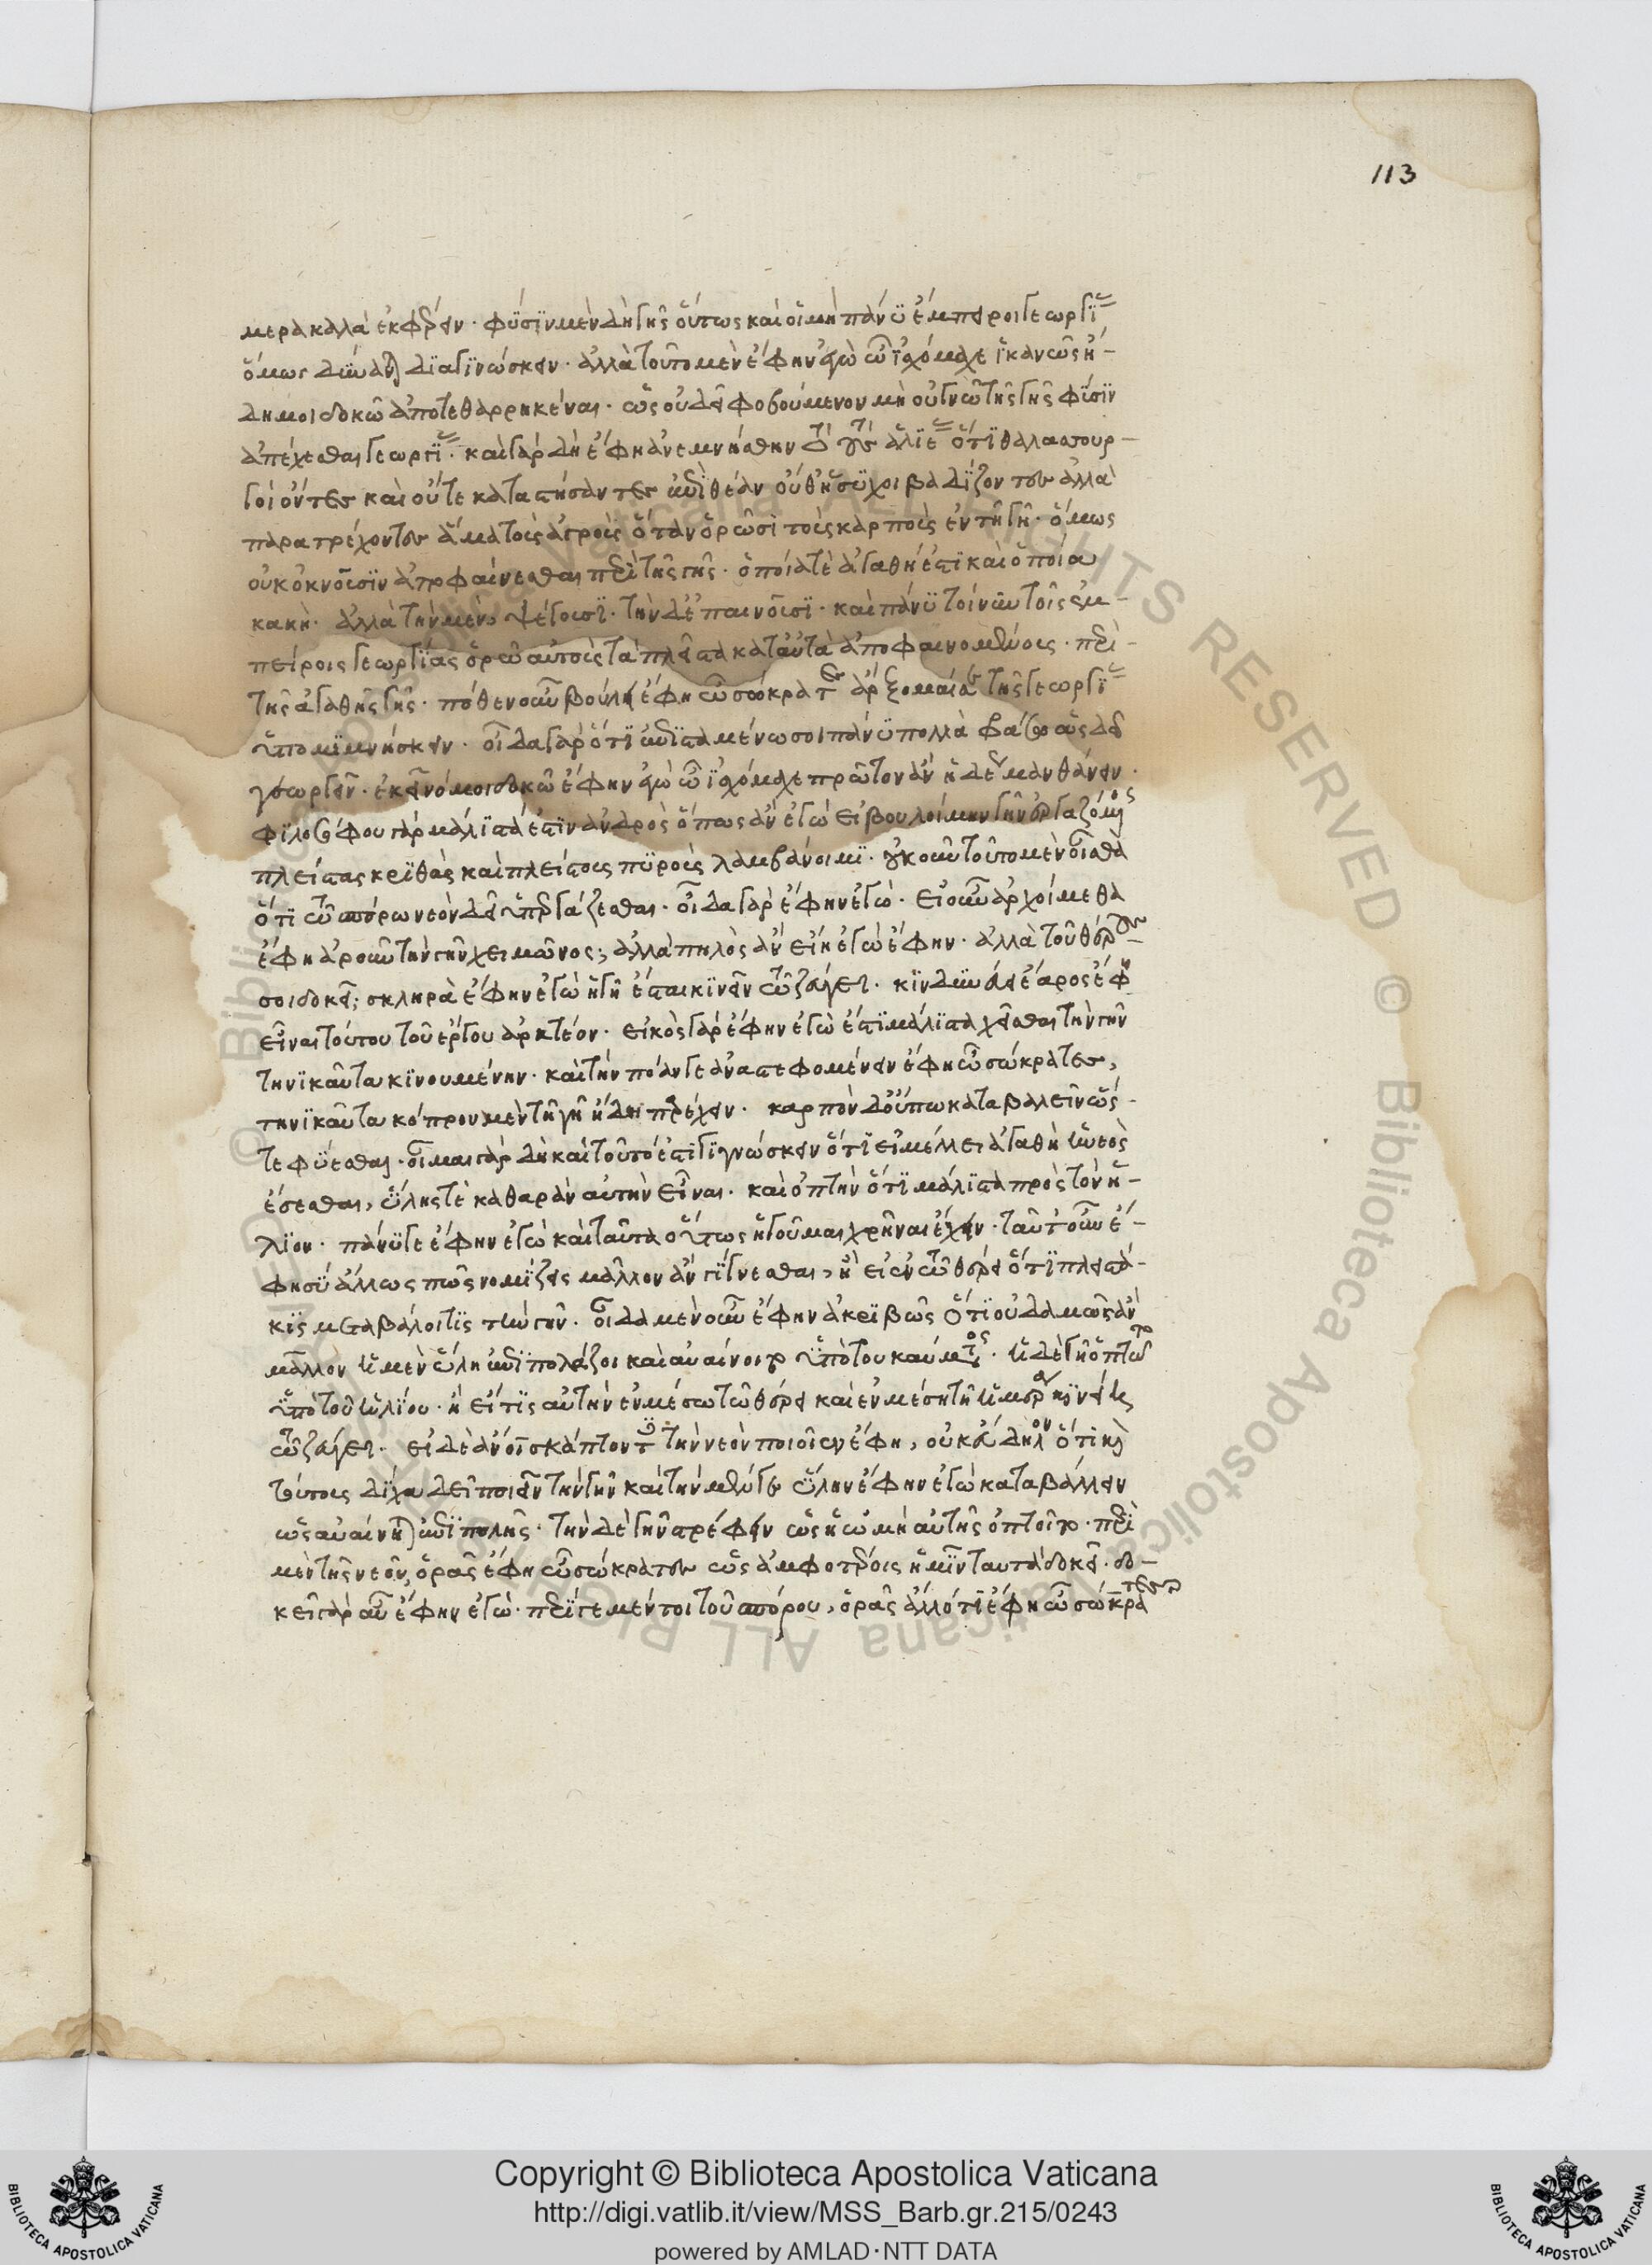 μερα καλὰ ἐκφέρειν· φύσιν μὲν δὴ γῆς οὕτως καὶ οἱ μὴ πάνυ ἔμπειροι γεωργίας
ὅμως δύνανται διαγινώσκειν· ἀλλὰ τοῦτο μὲν ἔφην ἐγὼ ὦ ἰσχόμαχε ἱκανῶς ἤ-
δη μοι δοκῶ ἀποτεθαρρηκέναι· ὡς οὐ δεῖ φοβούμενον μὴ οὐ γνῶ τῆς γῆς φύσιν
ἀπέχεσθαι γεωργίας· καὶ γὰρ δὴ ἔφη ἀνεμνήσθην τὸ τῶν ἁλιέων ὅτι θαλασσουρ-
γοὶ ὄντες καὶ οὔτε καταστήσαντες ἐπὶ θέαν οὔθ' ἥσυχοι βαδίζοντες ἀλλὰ
παρατρέχοντες ἅμα τοὺς ἀγροὺς ὅταν ὁρῶσι τοὺς καρποὺς ἐν τῇ γῇ· ὅμως
οὐκ ὀκνοῦσιν ἀποφαίνεσθαι περὶ τῆς γῆς· ὁποία τὲ ἀγαθή ἐστι καὶ ὁποία
κακή· ἀλλὰ τὴν μὲν ψέγουσι· τὴν δ' ἐπαινοῦσι· καὶ πάνυ τοίνυν τοῖς ἐμ-
πείροις γεωργίας ὁρῶ αὐτοὺς τὰ πλεῖστα κατ' αὐτὰ ἀποφαινομένους· περὶ
τῆς ἀγαθῆς γῆς· πόθεν οὖν βούλει ἔφη ὦ σώκρατες ἄρξομαί σε τῆς γεωργίας
ὑπομιμνήσκειν· οἶδα γὰρ ὅτι ἐπισταμένω σοι πάνυ πολλὰ φράσω ὡς δεῖ
γεωργεῖν· ἐκεῖνό μοι δοκῶ ἔφην ἐγὼ ὦ ἰσχόμαχε πρῶτον ἂν ἡδέως μανθάνειν·
φιλοσόφου γὰρ μάλιστά ἐστιν ἀνδρὸς ὅπως ἂν ἐγὼ εἰ βουλοίμην γῆν ἐργαζόμενος
πλείστας κριθὰς καὶ πλείστους πυροὺς λαμβάνοιμι· οὐκοῦν τοῦτο μὲν οἶσθα
ὅτι τῶ σπόρω νεὸν δεῖ ὑπεργάζεσθαι· οἶδα γὰρ ἔφην ἐγώ· εἰ οὖν ἀρχοίμεθα
ἔφη ἀροῦν τὴν γῆν χειμῶνος; ἀλλὰ πηλὸς ἂν εἴη ἐγὼ ἔφην· ἀλλὰ τοῦ θέρους
σοι δοκεῖ; σκληρὰ ἔφην ἐγὼ ἡ γῆ ἔσται κινεῖν τῶ ζεύγει· κινδυνεύει ἔαρος ἔφη
εἶναι τούτου τοῦ ἔργου ἀρκτέον· εἰκὸς γὰρ ἔφην ἐγὼ ἐστὶ μάλιστα χεῖσθαι τὴν γῆν
τηνικαῦτα κινουμένην· καὶ τὴν πόαν γε ἀναστρεφομένην ἔφη ὦ σώκρατες,
τηνικαῦτα κόπρον μὲν τῇ γῇ ἤδη παρέχειν· καρπὸν δ' οὔπω καταβαλεῖν ὥς-
τε φύεσθαι· οἶμαι γὰρ δὴ καὶ τοῦτό ἐστι γιγνώσκειν ὅτι εἰ μέλλει ἀγαθὴ ἡ νεὸς
ἔσεσθαι, ὕλης τὲ καθαρὰν αὐτὴν εἶναι· καὶ ὀπτὴν ὅτι μάλιστα πρὸς τὸν ἥ-
λιον· πάνυ γε ἔφην ἐγὼ καὶ ταῦτα οὕτως ἡγοῦμαι χρῆναι ἔχειν· ταῦτ' οὖν ἔ-
φη σὺ ἄλλως πῶς νομίζεις μᾶλλον ἂν γίγνεσθαι, ἢ εἰ ἐν τῶ θέρει ὅτι πλειστά-
κις μεταβάλοι τὶς τὴν γῆν· οἶδα μὲν οὖν ἔφην ἀκριβῶς ὅτι οὐδαμῶς ἂν
μᾶλλον ἡ μὲν ὕλη ἐπιπολάζοι καὶ αὐαίνοιτο ὑπὸ τοῦ καύματος· ἡ δὲ γῆ ὀπτῶτο
ὑπὸ τοῦ ἡλίου· ἢ εἴ τις αὐτὴν ἐν μέσω τῶ θέρει καὶ ἐν μέση τῆ ἡμέρα κινοίη
τῶ ζεύγει· εἰ δὲ ἄνοι σκάπτοντες τὴν νεὸν ποιοῖεν ἔφη, οὐκ εὔδηλον ὅτι καὶ
τούτους δίχα δεῖ ποιεῖν τὴν γῆν καὶ τὴν μέν γε ὕλην ἔφην ἐγὼ καταβάλλειν
ὡς αὐαίνηται ἐπιπολῆς· τὴν δὲ γῆν στρέφειν ὡς ἡ ὠμὴ αὐτῆς ὀπτοῖτο· περὶ
μὲν τῆς νεοῦ, ὁρᾶς ἔφη ὦ σώκρατες ὡς ἀμφοτέροις ἡμῖν ταυτὰ δοκεῖ· δο-
κεῖ γὰρ οὖν ἔφην ἐγώ· περί γε μέντοι τοῦ σπόρου, ὁρᾶς ἄλλό τι ἔφη ὦ σώκρατες
113
Copyright © Biblioteca Apostolica Vaticana
http://digi.vatlib.it/view/MSS_Barb.gr.215/0243
powered by AMLAD·NTT DATA
BIBLIOTECA APOSTOLICA VATICANA
BIBLIOTECA APOSTOLICA VATICANA
© Biblioteca Apostolica Vaticana ALL RIGHTS RESERVED © Biblioteca Apostolica Vaticana ALL RIGHTS RESERVED